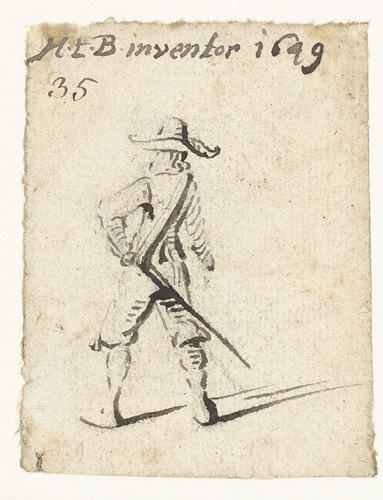 H.t.B inventor 1649
35